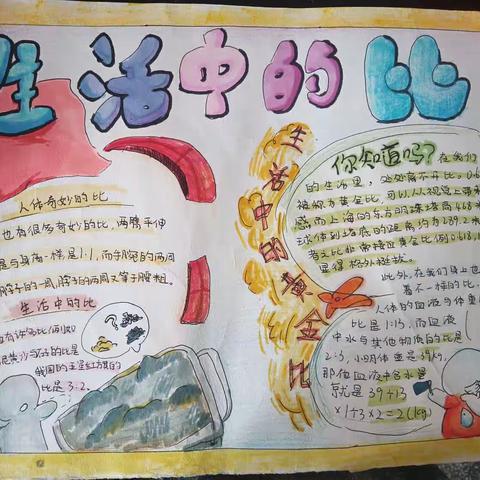 生活中的比
人体奇妙的比
也有很多奇妙的比，两臂平伸
是与身高一样是1:1，而手腕的两周
脖子的一周，脖子的两周又等于腰粗。
生活中的比
我国的五星红旗的
比是3:2。
生活中的黄金比
你知道吗?
在我们
的生活里，处处离不开比。0.6
被称为黄金比，可以从视觉上带来
感而上海的东方明珠塔高468米
球体到塔底的距离约为289.2米
者之比非常接近黄金比例0.618，
显得格外挺拔。
此外，在我们身上也
着不一样的比，
人体的血液与体重
比是1:13，而血液
中水与其他物质的比是
2:3，小明体重是39kg，
那他血液中含水量
就是39÷13
×1÷3×2=2(kg)